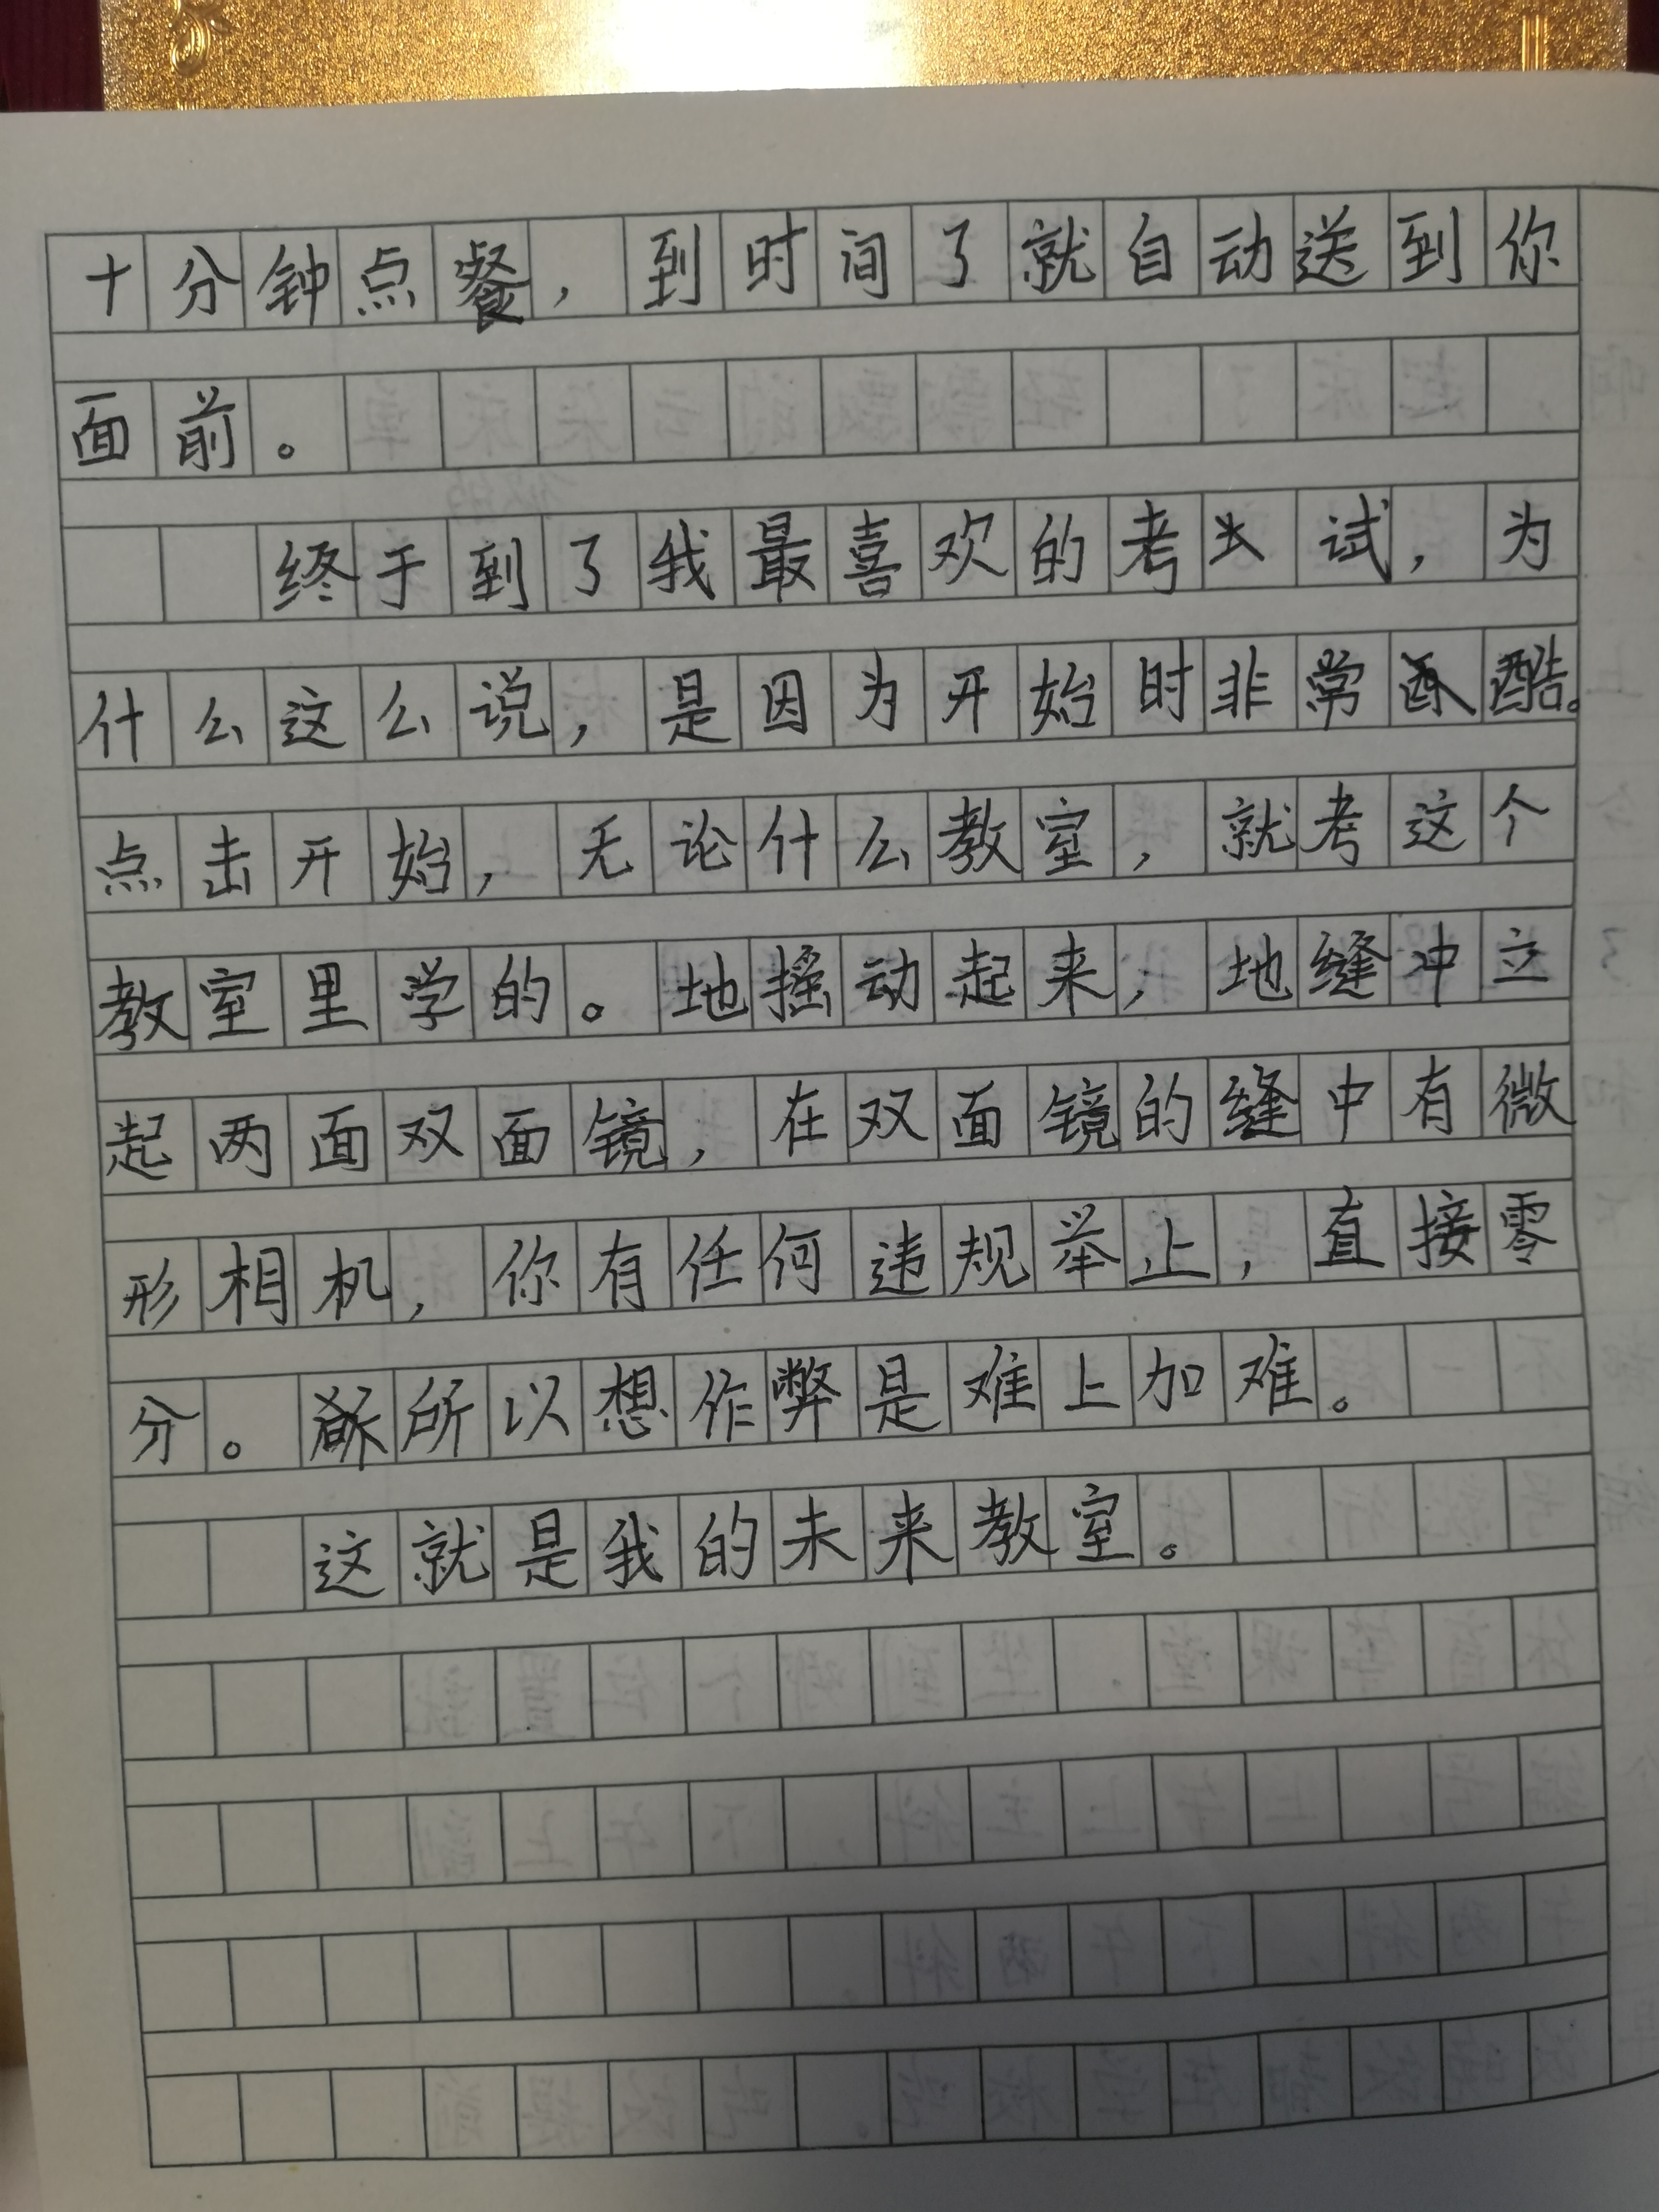 十分钟点餐，到时间了就自动送到你
面前。
终于到了我最喜欢的考试，为
什么这么说，是因为开始时非常酷。
点击开始，无论什么教室，就考这个
教室里学的。地摇动起来，地缝冲立
起两面双面镜，在双面镜的缝中有微
形相机，你有任何违规举止，直接零
分。所以想作弊是难上加难。
这就是我的未来教室。